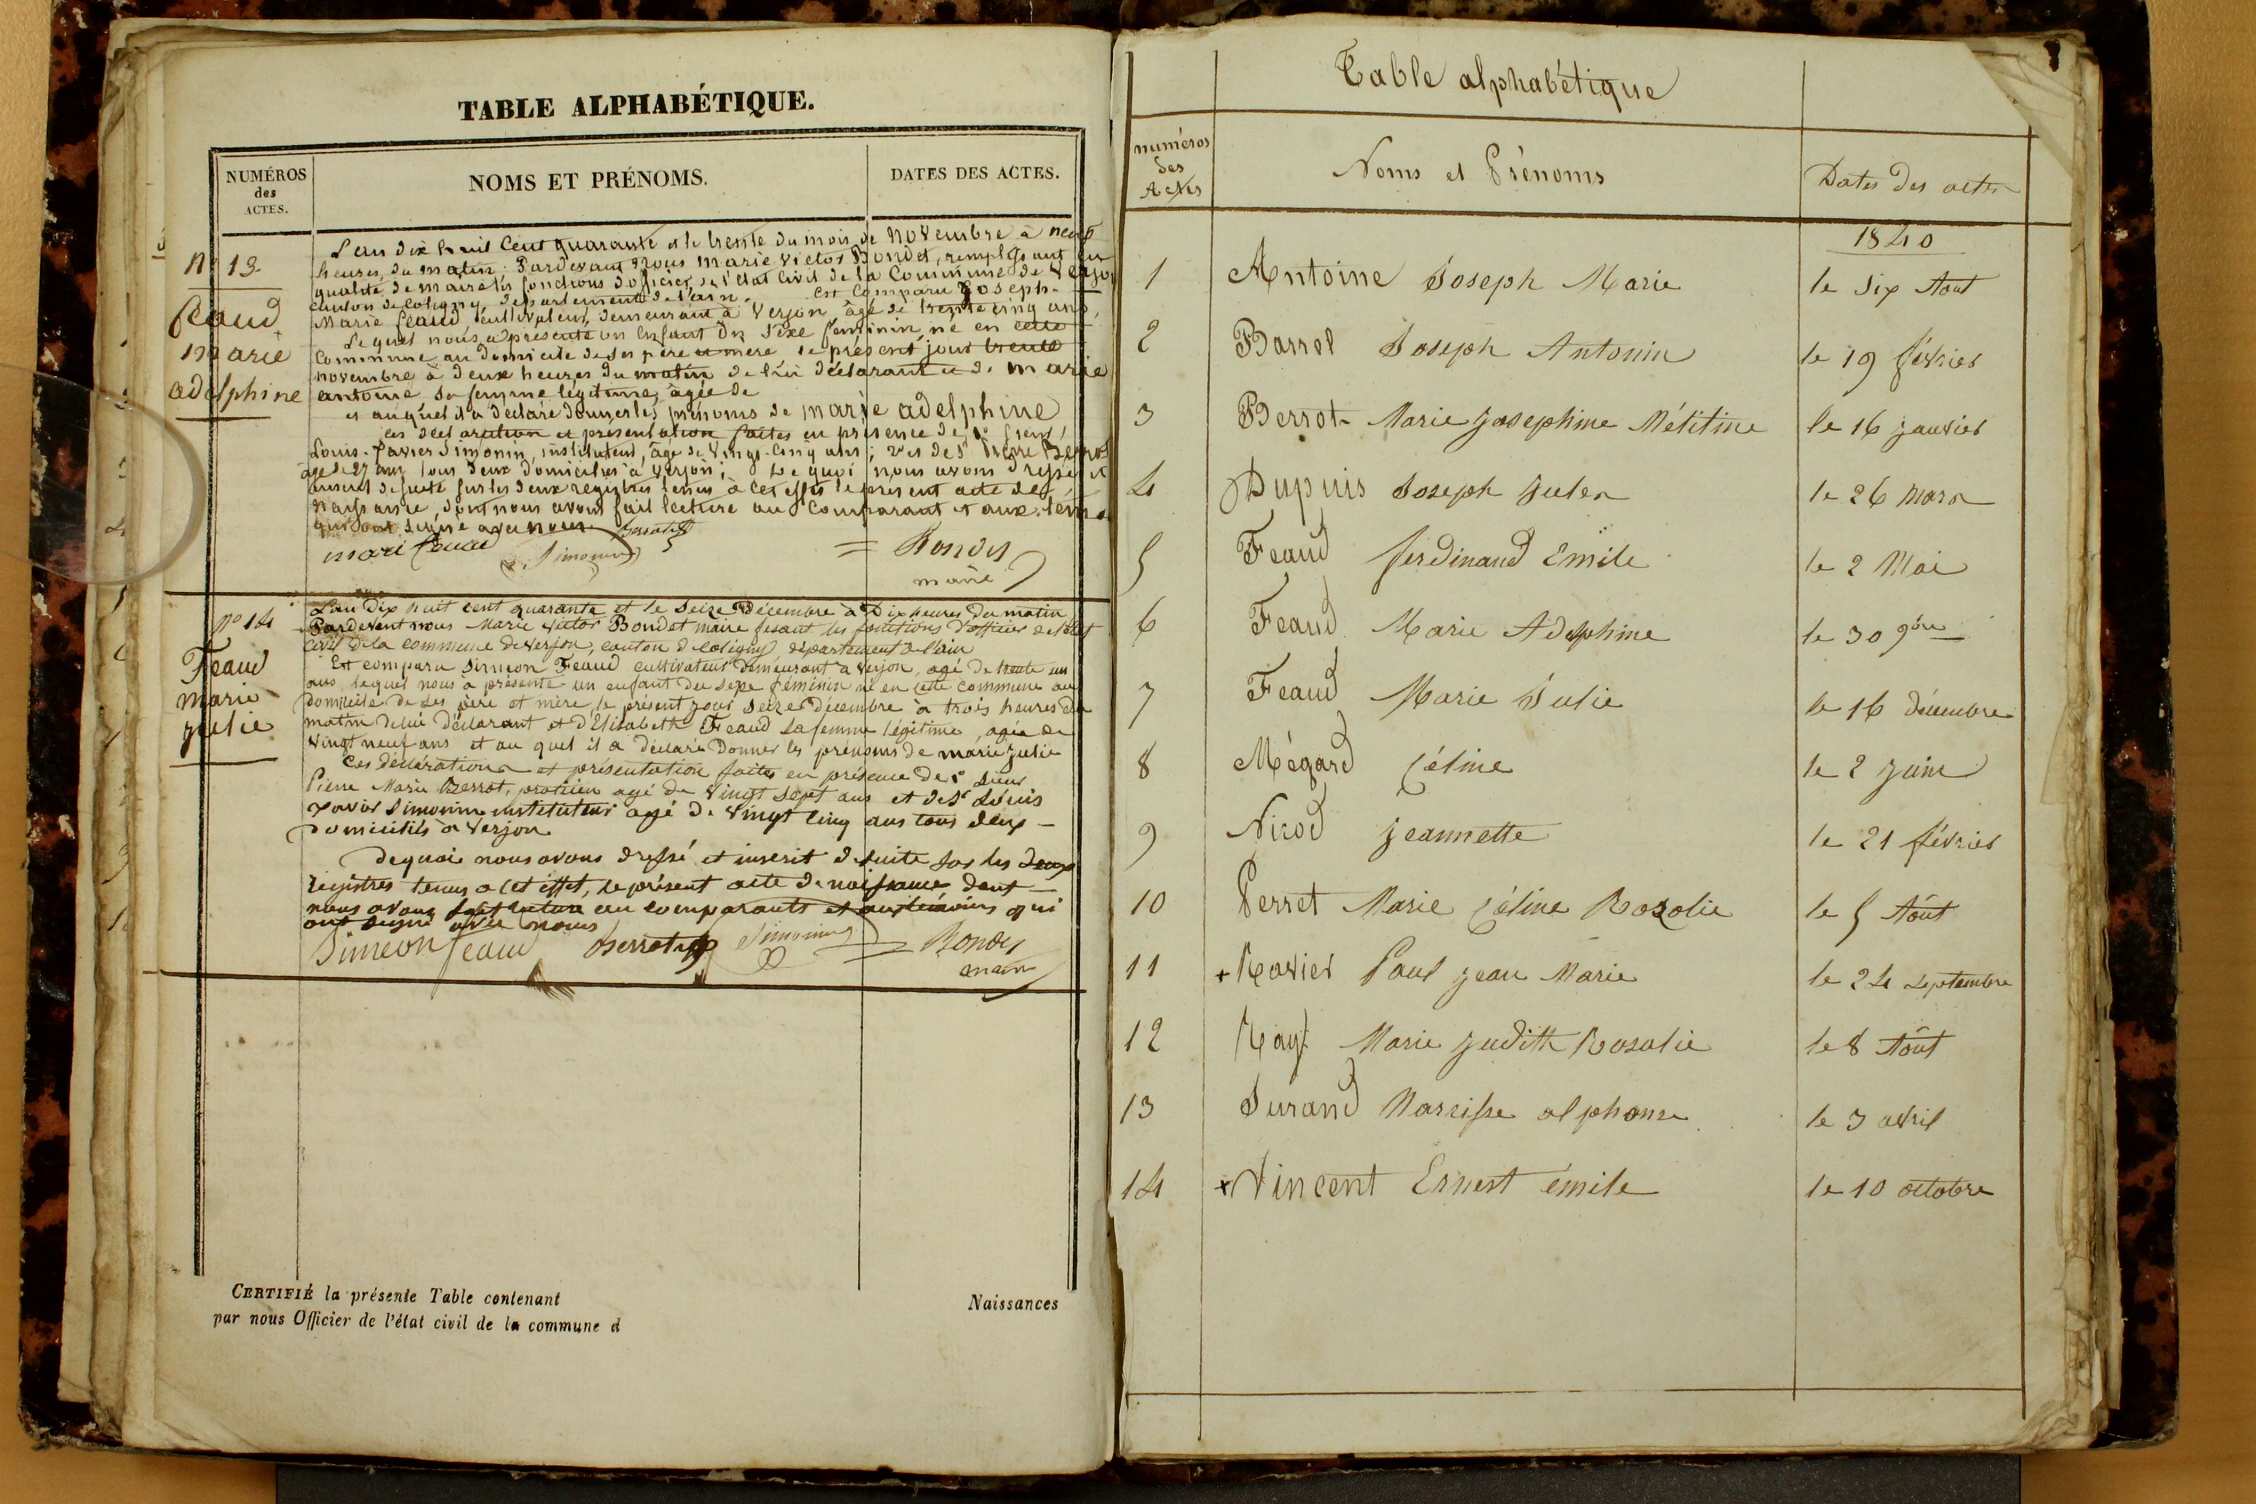 TABLE ALPHABÉTIQUE.
NUMÉROS
des
ACTES.
NOMS ET PRÉNOMS.
DATES DES ACTES.
N° 13.
feaud
marie
adelphine
L'an dix huit Cent quarante et le trente du mois de Novembre à neuf
heures, du matin. Pardevant Nous Marie Victor Bondet, remplissant en
qualité de maire les fonctions d'officier de l'état Civil de la Commune de Verjon
canton de coligny, département de l'ain. Est Comparu Joseph-
Marie feaud cultivateur, demeurant à Verjon, âgé de trente cinq ans,
Lequel nous a présenté un enfant du sexe féminin, né en cette
Commune au domicile de ses père et mère le présent jour trente
novembre à deux heures du matin de lui déclarant et de marie
antoine sa femme légitime, âgée de
et auquel il a déclaré donner les prénoms de marie adelphine
ces déclaration et présentation faites en présence de
Louis-Xavier Simonin, instituteur, âgé de Vingt-Cinq ans; 2° et de Sr Pierre Berrot
âgé de 27 ans tous deux domiciliés à Verjon; De quoi nous avons dressé et
inscrit de suite sur les deux registres tenus à cet effet le présent acte de
naissance, dont nous avons fait lecture au Comparant et aux témo
qui ont signé avec nous
mari feaud
Simonin
Bondet
maire
N° 14
Feaud
marie
julie
L'an Dix huit cent quarante et le Seize Décembre à Dix heures du matin
Pardevent nous Marie Victor Bondet maire fesant les fonctions d'officier de l'état
civil de la commune de Verjon, canton de coligny, département de l'ain
Est comparu Simeon Feaud cultivateur demeurant à Verjon, agé de trente un
ans, lequel nous à présenté un enfant du sexe féminin né en cette commune au
domicile de ses père et mère, le présent jour seize Décembre à trois heures du
matin de lui déclarant et d'Elisabeth Feaud sa femme légitime, agée de
Vingt neuf ans et au quel il a déclaré Donner les prénoms de marie julie
Ces déclaration et présentation faites en présence de Sieur
Pierre Marie Berrot, praticien agé de Vingt sept ans et de Sr Louis
xavier Simonin instituteur agé de Vingt cinq ans tous deux
Domiciliés à Verjon
Dequoi nous avons dressé et inscrit de suite sur les deux
registres tenus a cet effet, le présent acte de naissance dont
nous avons fait lecture au comparants et aux témoins qui
ont signé avec nous
Simeon feaud Berrot Simonin Bondet
maire
CERTIFIÉ la présente Table contenant Naissances
par nous Officier de l'état civil de la commune d
Table alphabétique
numéros
des
Actes
Noms et Prénoms
Dates des actes
1840
1 Antoine Joseph Marie le six Aout
2 Barrel Joseph Antonin le 19 février
3 Berrot Marie Josephine Mélitine le 16 janvier
4 Dupuis Joseph Jules le 26 mars
5 Feaud ferdinand Emile le 2 Mai
6 Feaud Marie Adelphine le 30 9bre
7 Feaud Marie Julie le 16 décembre
8 Mégard Céline le 2 juin
9 Nicod jeannette le 21 février
10 Perret Marie Céline Rosalie le 5 Aôut
11 +Ravier Paul jean Marie le 24 septembre
12 Ray Marie Judith Rosalie le 8 Aôut
13 Durand Narcisse alphonse le 3 avril
14 +Vincent Ernest émile le 10 octobre